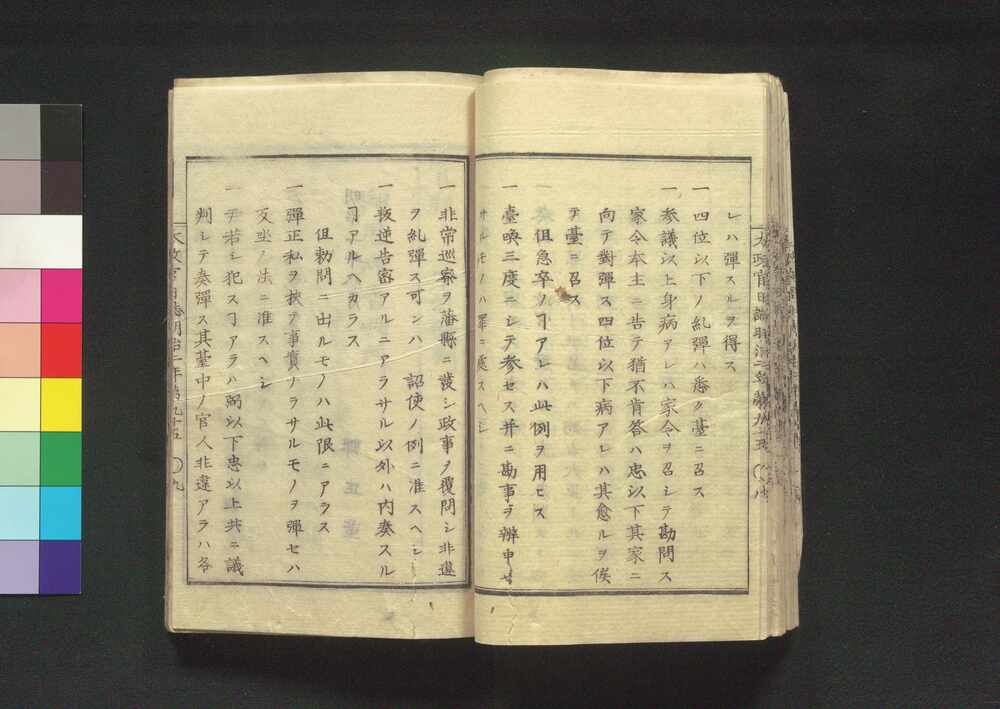 レハ彈スルヲ得ス
一四位以下ノ糺彈ハ悉ク臺ニ召ス
一參議以上身病アレハ家令ヲ召シテ勘問ス
家令本主ニ告テ猶不肯答ハ忠以下其家ニ
向テ對彈ス四位以下病アレハ其愈ルヲ俟
テ臺ニ召ス
但急卒ノヿアレハ此例ヲ用ヒス
一臺喚三度ニシテ參セス并ニ勘事ヲ辨申セ
サルモノハ罪ニ處スヘシ
一非常巡察ヲ藩縣ニ發シ政事ヲ覆問シ非違
ヲ糺彈ス可シハ 詔使ノ例ニ准スヘシ
一叛逆告密アルニアラサル以外ハ内奏スル
ヿアルヘカラス
但勅問ニ出ルモノハ此限ニアラス
一彈正私ヲ挾テ事實ナラサルモノヲ彈セハ
反坐ノ法ニ准スヘシ
一 若シ犯スヿアラハ弼以下忠以上共ニ議
判シテ奏彈ス其臺中ノ官人非違アラハ各
太政官日誌明治二年第九十五 〇八
太政官日誌明治二年第九十五 〇九